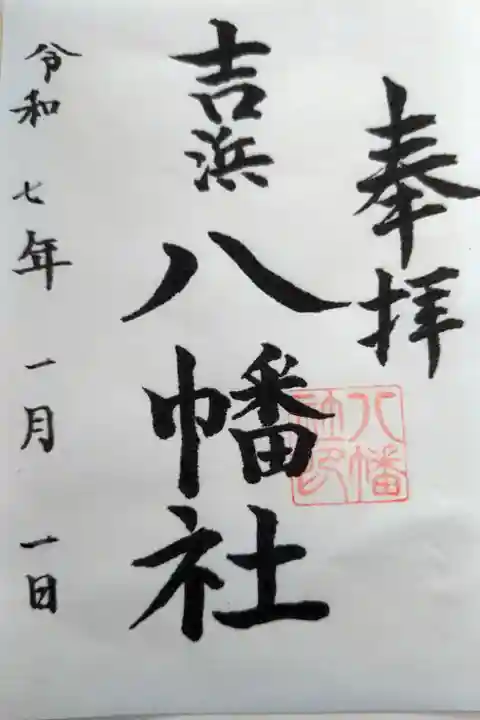 奉拝
吉浜
八幡社
八幡
社印
令和 七年 一月 一日